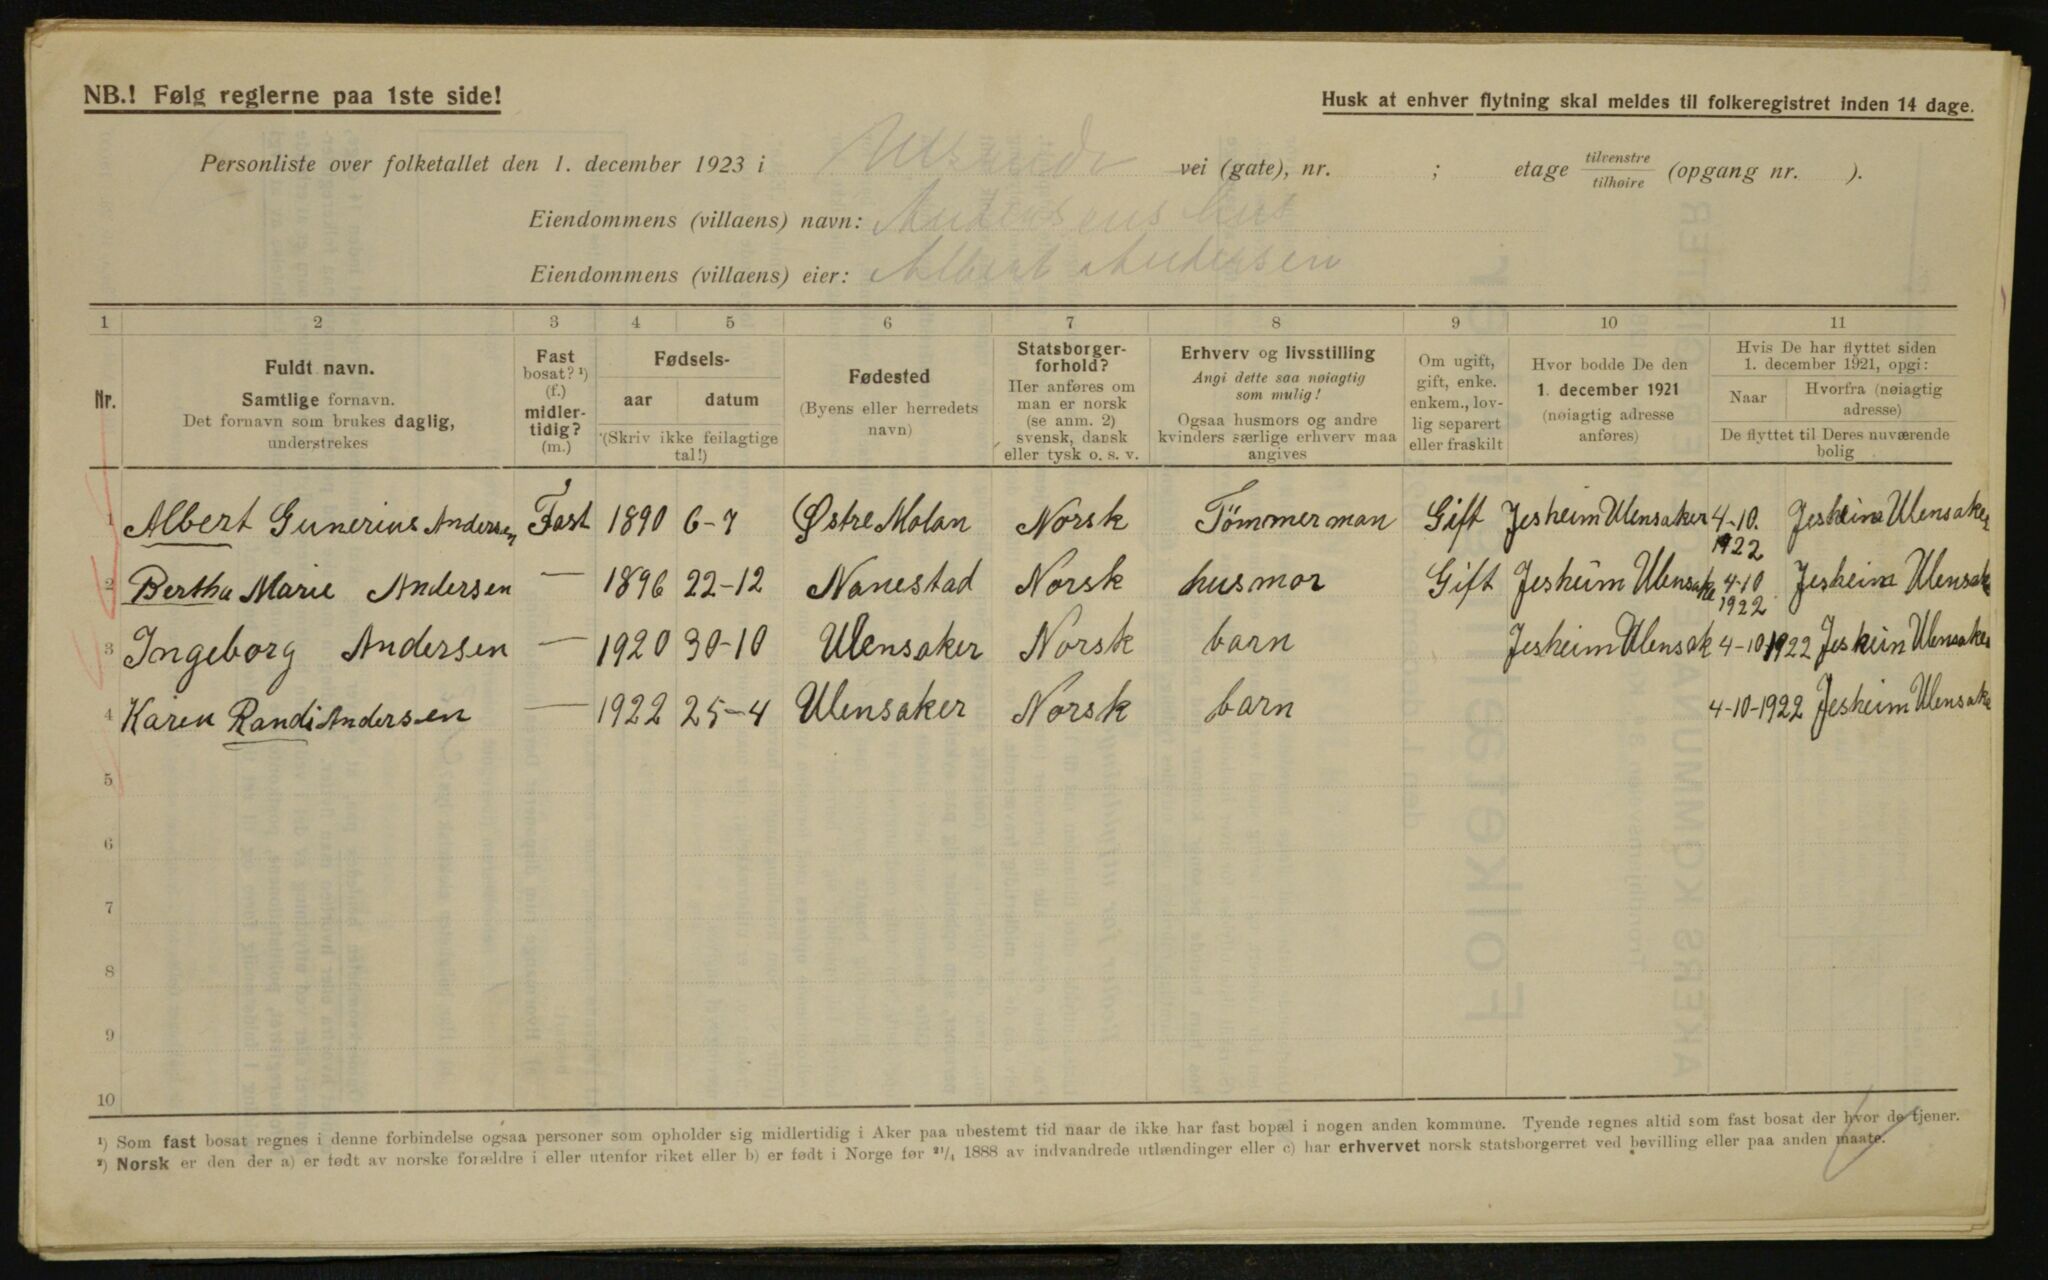 NB.! Følg reglerne paa 1ste side!
Husk at enhver flytning skal meldes til folkeregistret inden 14 dage.
Personliste over folketallet den 1. december 1923 i vei (gate), nr. ; etage tilvenstre tilhøire (opgang nr. ).
Eiendommens (villaens) navn: Andersens hus
Eiendommens (villaens) eier: Albert Andersen
1 2 3 4 5 6 7 8 9 10 11
Nr.
Fuldt navn.
Samtlige fornavn.
Det fornavn som brukes daglig,
understrekes
Fast
bosat? ¹)
(f.)
midler-
tidig?
(m.)
Fødsels-
aar datum
(Skriv ikke feilagtige
tal!)
Fødested
(Byens eller herredets
navn)
Statsborger-
forhold?
Her anføres om
man er norsk
(se anm. 2)
svensk, dansk
eller tysk o. s. v.
Erhverv og livsstilling
Angi dette saa nøiagtig
som mulig!
Ogsaa husmors og andre
kvinders særlige erhverv maa
angives
Om ugift,
gift, enke.
enkem., lov-
lig separert
eller fraskilt
Hvor bodde De den
1. december 1921
(nøiagtig adresse
anføres)
Hvis De har flyttet siden
1. december 1921, opgi:
Naar
Hvorfra (nøiagtig
adresse)
De flyttet til Deres nuværende
bolig
1 Albert Gunerius Andersen Fast 1890 6-7 Østre Molan Norsk Tömmerman Gift Jesheim Ulensaker 4-10. 1922 Jesheim Ulensaker
2 Bertha Marie Andersen — 1896 22-12 Nanestad Norsk husmor Gift Jesheim Ulensake 4-10 1922 Jesheim Ulensak
3 Ingeborg Andersen — 1920 30-10 Ulensaker Norsk barn Jesheim Ulensak 4-10-1922 Jesheim Ulensaker
4 Karen Randi Andersen — 1922 25-4 Ulensaker Norsk barn 4-10-1922 Jesheim Ulensake
5
6
7
8
9
10
¹) Som fast bosat regnes i denne forbindelse ogsaa personer som opholder sig midlertidig i Aker paa ubestemt tid naar de ikke har fast bopæl i nogen anden kommune. Tyende regnes altid som fast bosat der hvor de tjener.
²) Norsk er den der a) er født av norske forældre i eller utenfor riket eller b) er født i Norge før ²¹/₄ 1888 av indvandrede utlændinger eller c) har erhvervet norsk statsborgerret ved bevilling eller paa anden maate.